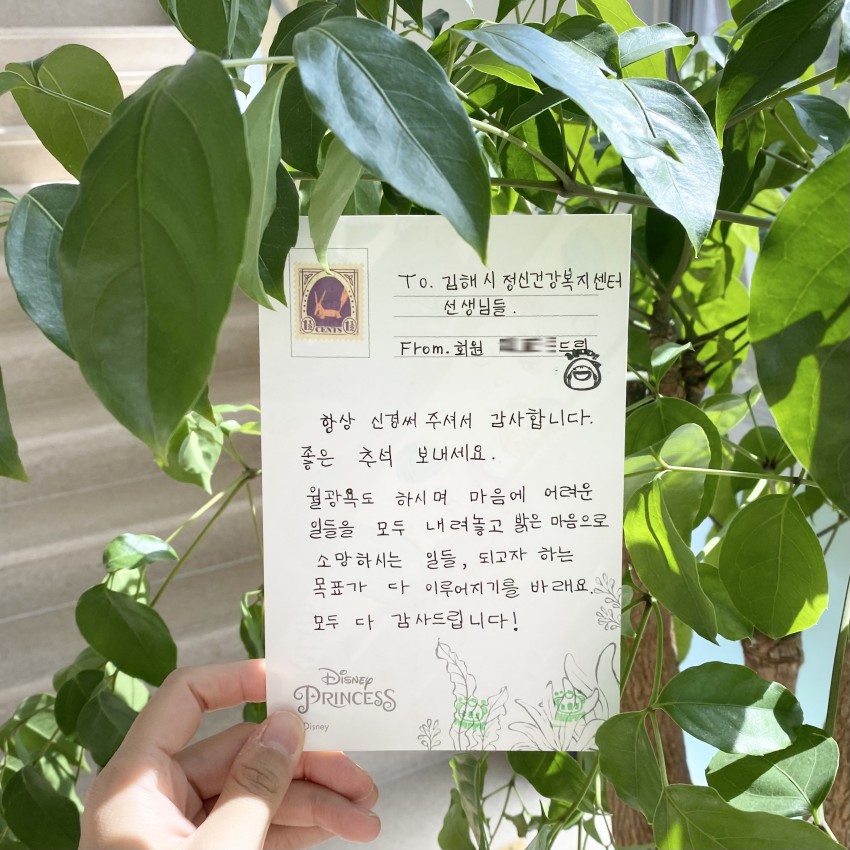 1½ CENTS 1½
To. 김해시 정신건강복지센터
선생님들.
From. 회원 드림
항상 신경써 주셔서 감사합니다.
좋은 추석 보내세요.
월광욕도 하시며 마음에 어려운
일들을 모두 내려놓고 밝은 마음으로
소망하시는 일들, 되고자 하는
목표가 다 이루어지기를 바래요.
모두 다 감사드립니다!
Disney
PRINCESS
Disney